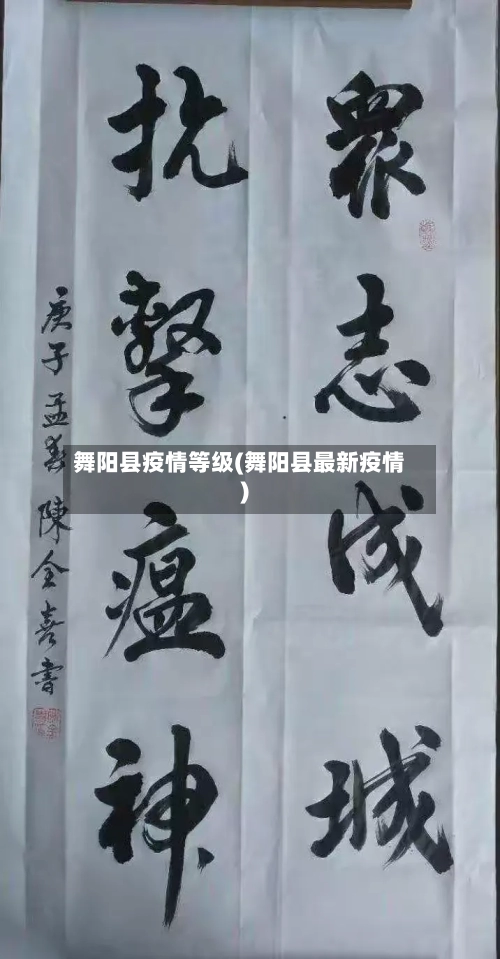 眾志成城
抗擊瘟神
庚子孟春陳全喜書
舞阳县疫情等级(舞阳县最新疫情
)